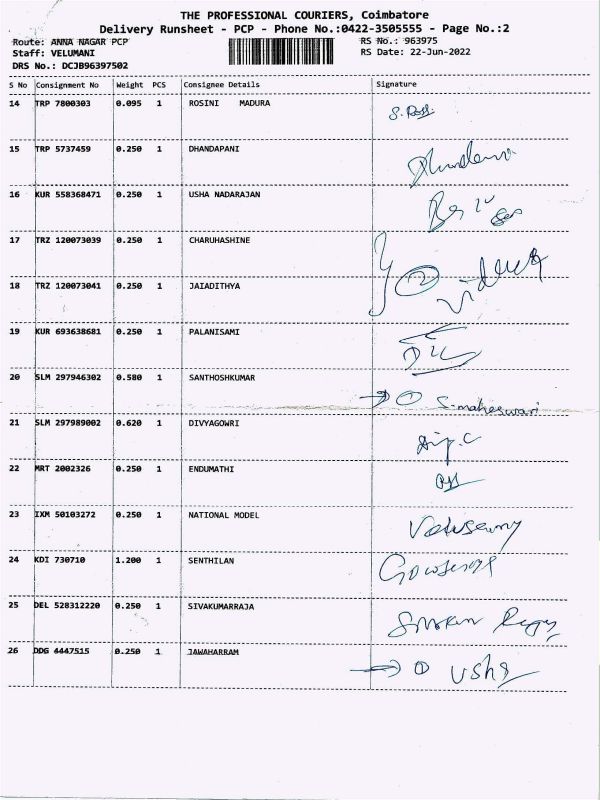 THE PROFESSIONAL COURIERS, Coimbatore
Delivery Runsheet - PCP - Phone No.:0422-3505555 - Page No.:2
Route: ANNA NAGAR PCP RS No.: 963975
Staff: VELUMANI RS Date: 22-Jun-2022
DRS No.: DCJB96397502
S No Consignment No Weight PCS Consignee Details Signature
14 TRP 7800303 0.095 1 ROSINI MADURA
15 TRP 5737459 0.250 1 DHANDAPANI
16 KUR 558368471 0.250 1 USHA NADARAJAN
17 TRZ 120073039 0.250 1 CHARUHASHINE
18 TRZ 120073041 0.250 1 JAIADITHYA
19 KUR 693638681 0.250 1 PALANISAMI
20 SLM 297946302 0.580 1 SANTHOSHKUMAR → 1 S.maheswari
21 SLM 297989002 0.620 1 DIVYAGOWRI
22 MRT 2002326 0.250 1 ENDUMATHI
23 IXM 50103272 0.250 1 NATIONAL MODEL
24 KDI 730710 1.200 1 SENTHILAN
25 DEL 528312220 0.250 1 SIVAKUMARRAJA
26 DDG 4447515 0.250 1 JAWAHARRAM → 1 Usha